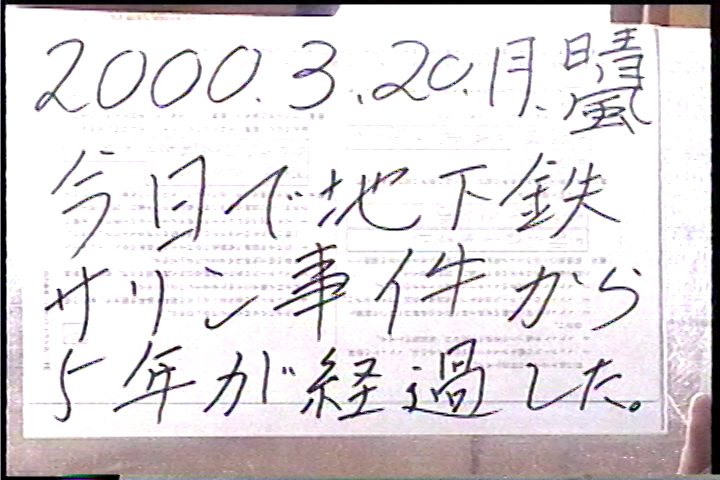 2000.3.20.月.晴
嵐
今日で地下鉄
サリン事件から
5年が経過した。